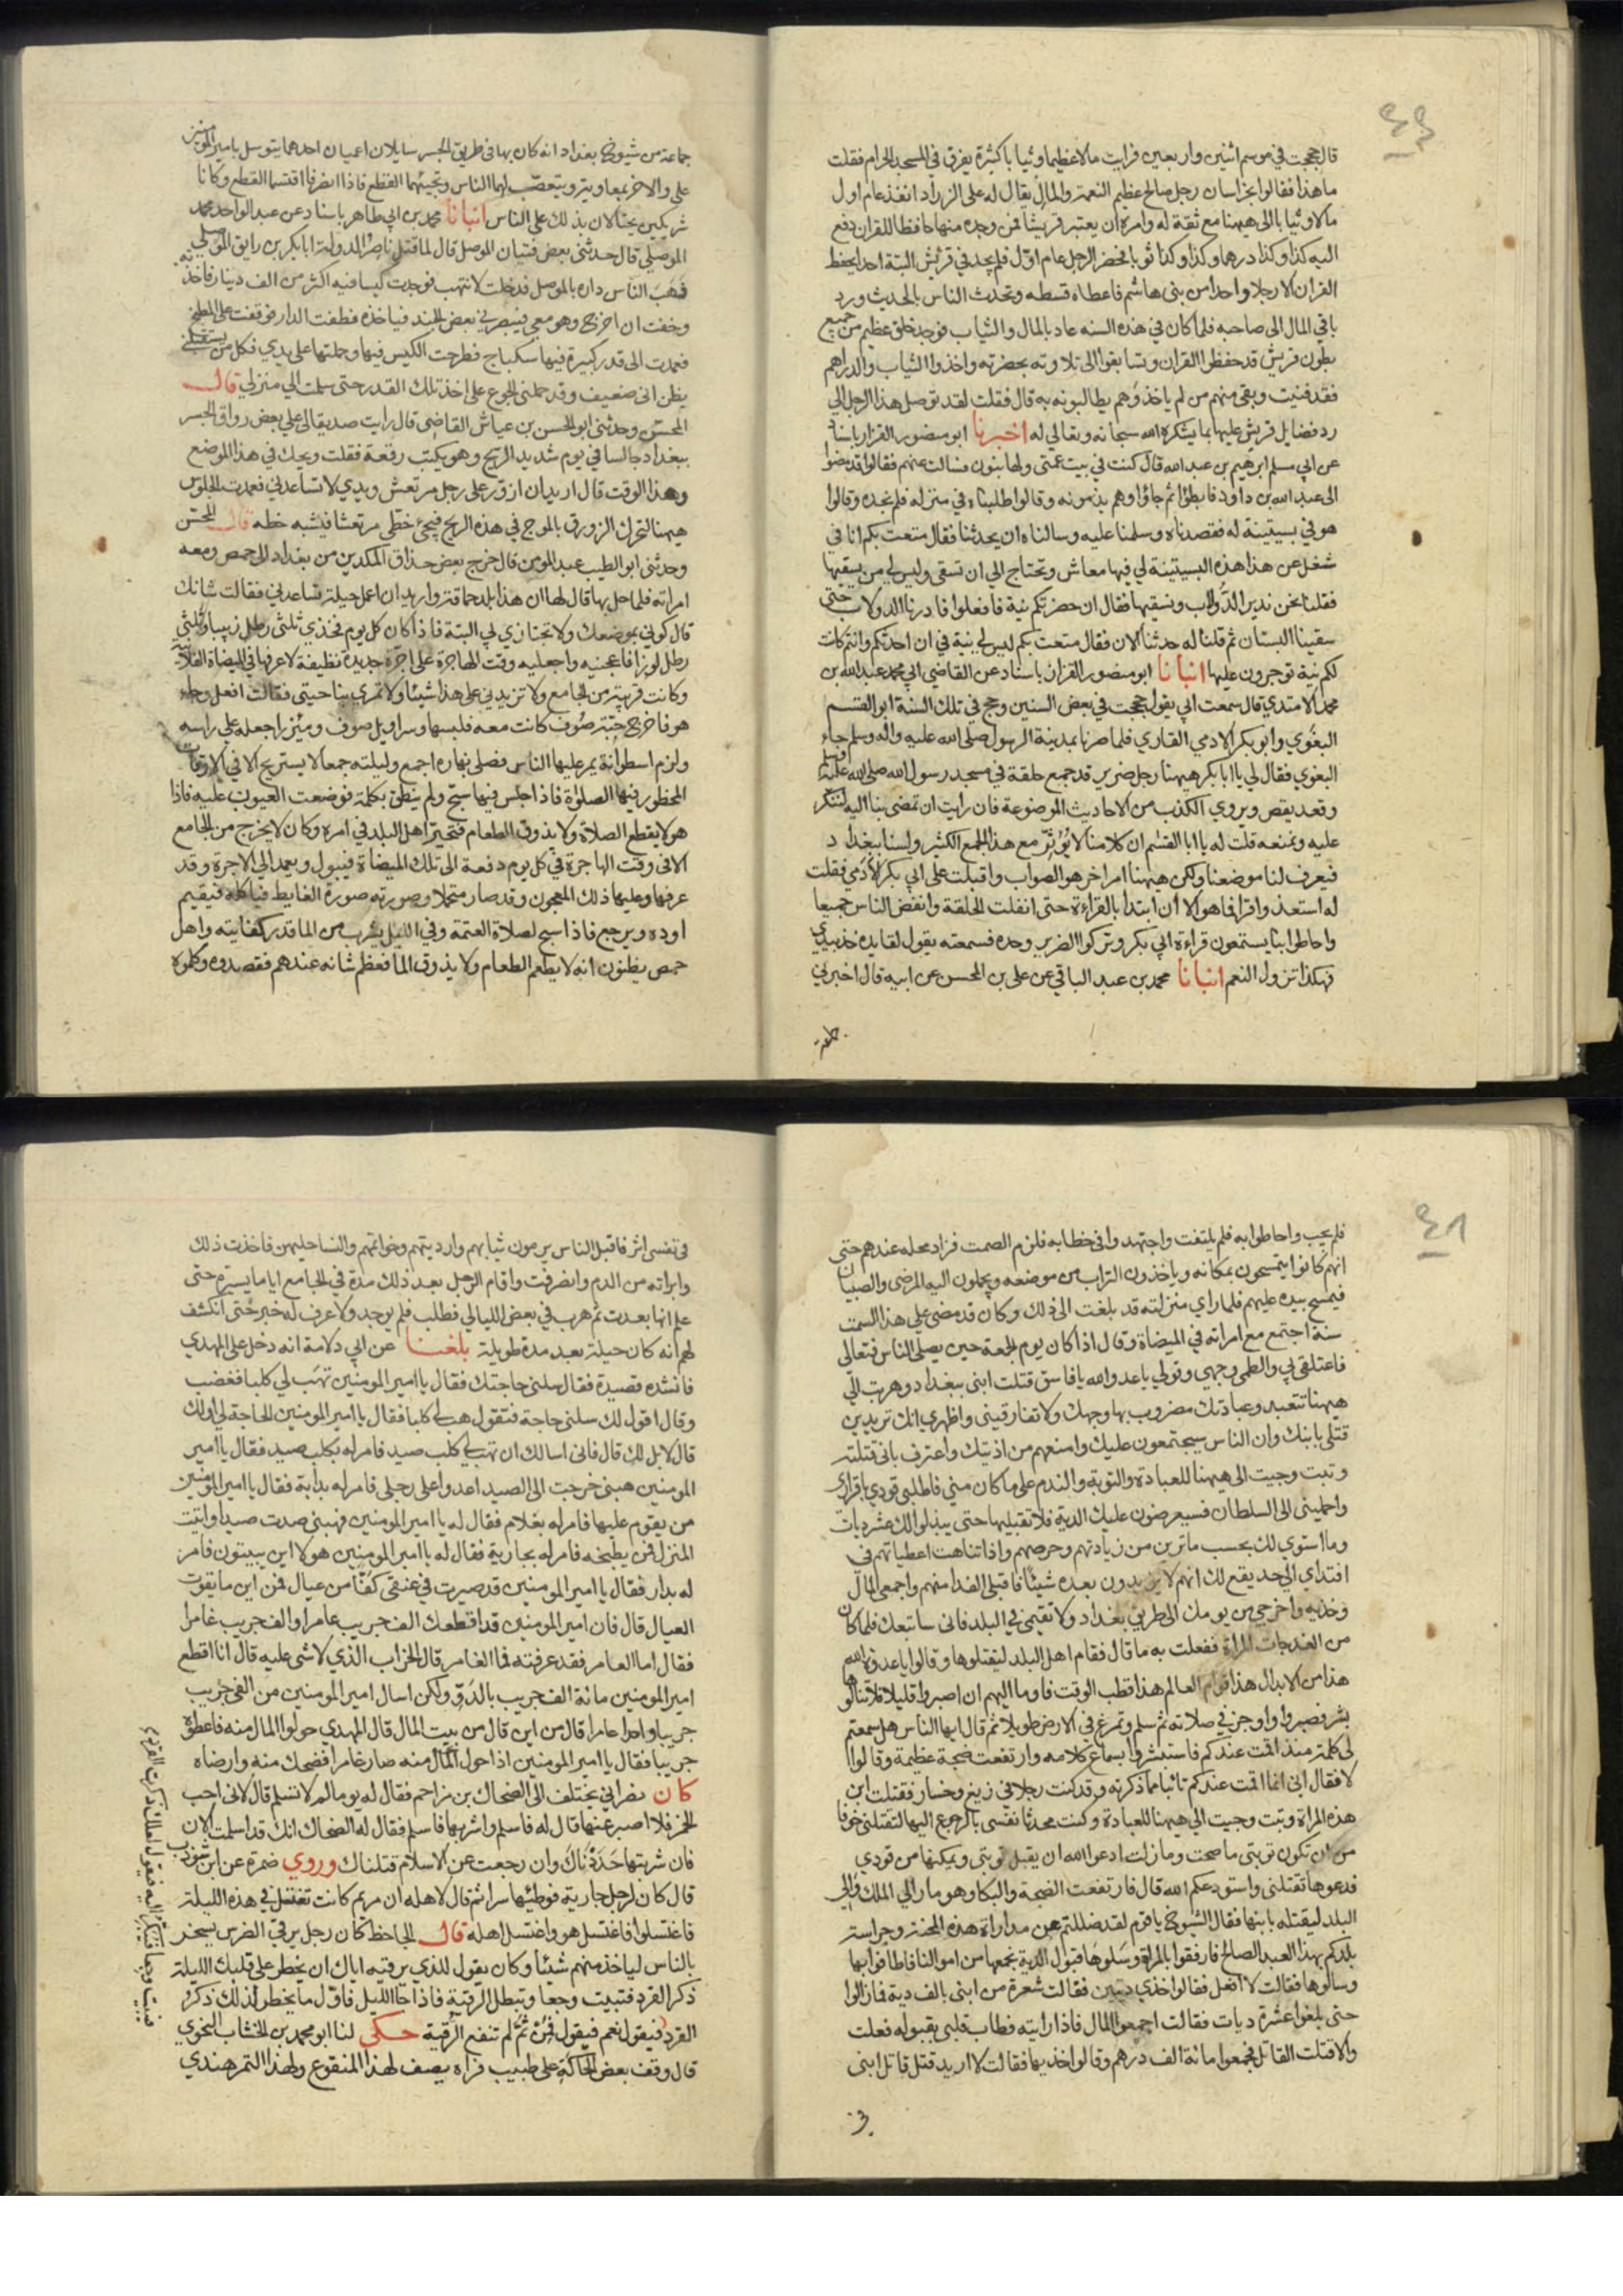 قال حججت في موسم اثنين واربعين فرايت مالا عظيما وثيابا كثيرة يفرق في المسجد الحرام فقلت
ما هذا فقالوا بخراسان رجل صالح عظيم النعمة والمال يقال له علي الزراد انفذ عام اول
مالا وثيابا الى ههنا مع ثقة له وامره ان يعتبر قريشا فمن وجده منها حافظا للقران دفع
اليه كذا وكذا درهما وكذا وكذا ثوبا فحضر الرجل عام اول فلم يجد في قريش البتة احدا يحفظ
القران الا رجلا واحدا من بني هاشم فاعطاه قسطه وتحدث الناس بالحديث ورد
باقي المال الى صاحبه فلما كان في هذه السنه عاد بالمال والثياب فوجد خلق عظيم من جميع
بطون قريش قد حفظوا القران وتسابقوا الى تلاوته بحضرته واخذوا الثياب والدراهم
فقد فنيت وبقي منهم من لم ياخذ وهم يطالبونه به قال فقلت لقد توصل هذا الرجل الي
رد فضايل قريش عليها بما يشكره الله سبحانه وتعالي له اخبرنا ابو منصور القزاز باسناد
عن ابي مسلم ابرهيم بن عبد الله قال كنت في بيت عمتي ولها بنون فسالت عنهم فقالوا قد مضوا
الى عبد الله بن داود فابطؤا ثم جاؤا وهم يذمونه وقالوا طلبناه في منزله فلم نجده وقالوا
هو في بسيتينة له فقصدناه وسلمنا عليه وسالناه ان يحدثنا فقال متعت بكم انا في
شغل عن هذا هذه البسيتينة لي فيها معاش وتحتاج الي ان تسقى وليس لي من يسقيها
فقلنا نحن ندير الدولاب ونسقيها فقال ان حضرتكم نية فافعلوا فادرنا الدولاب حتى
سقينا البستان ثم قلنا له حدثنا الان فقال متعت بكم ليس لي نية في ان احدثكم وانتم كانت
لكم نية توجرون عليها انبانا ابو منصور القزاز باسناد عن القاضي ابي محمد عبد الله بن
محمد الاسدي قال سمعت ابي يقول حججت في بعض السنين وحج في تلك السنة ابو القسم
البغوي وابو بكر الادمي القاري فلما صرنا بمدينة الرسول صلى الله عليه واله وسلم جاء
البغوي فقال لي يا ابا بكر ههنا رجل ضرير قد جمع حلقة في مسجد رسول الله صلى الله عليه وسلم
وقعد يقص ويروي الكذب من الاحاديث الموضوعة فان رايت ان تمضي بنا اليه لننكر
عليه ونمنعه قلت له يا ابا القسم ان كلامنا لا يؤثر مع هذا الجمع الكثير ولسنا ببغداد
فيعرف لنا موضعنا ولكن ههنا امر اخر هو الصواب واقبلت على ابي بكر الادمي فقلت
له استعذ واقرا فما هو الا ان ابتدا بالقراءة حتى انفلت الحلقة وانفض الناس جميعا
واحاطوا بنا يستمعون قراءة ابي بكر وتركوا الضرير وحده فسمعته يقول لقايده خذ بيدي
فهكذا تزول النعم انبانا محمد بن عبد الباقي عن علي بن المحسن عن ابيه قال اخبرني
جماعة
جماعة من شيوخ بغداد انه كان بها في طريق الجسر سايلان اعميان احدهما يتوسل بامير المومنين
علي والاخر بمعاوية ويتعصب لهما الناس وتجيئهما القطع فاذا انصرفا اقتسما القطع وكانا
شريكين يحتالان بذلك على الناس انبانا محمد بن ابي طاهر باسناد عن عبد الواحد محمد
الموصلي قال حدثني بعض فتيان الموصل قال لما قتل ناصر الدولة ابا بكر بن رايق الموصلي
نهب الناس داره بالموصل فدخلت لانتهب فوجدت كيسا فيه اكثر من الف دينار فاخذته
وخفت ان اخرج وهو معي فيبصرني بعض الجند فياخذه فطفت الدار فوقفت على المطبخ
فعمدت الى قدر كبيرة فيها سكباج فطرحت الكيس فيها وحملتها على يدي فكل من يستقبلني
يظن اني ضعيف وقد حملني الجوع على اخذ تلك القدر حتى سلمت الي منزلي قال
المحسن وحدثني ابو الحسن بن عياش القاضي قال رايت صديقا لي علي بعض زواق الجسر
ببغداد جالسا في يوم شديد الريح وهو يكتب رقعة فقلت ويحك في هذا الموضع
وهذا الوقت قال اريد ان ازور على رجل مرتعش ويدي لا تساعدني فعمدت الجلوس
ههنا لتحرك الزورق بالموج في هذه الريح فيجئ خطي مرتعشا فيشبه خطه قال المحسن
وحدثني ابو الطيب عبد المومن قال خرج بعض حذاق المكدين من بغداد الى حمص ومعه
امراته فلما حل بها قال لها ان هذا بلد حماقة واريد ان اعمل حيلة تساعدني فقالت شانك
قال كوني بموضعك ولا تجتازي لي البتة فاذا كان كل يوم فخذي ثلثي رطل زبيبا وثلثي
رطل لوزا فاعجنيه واجعليه وقت الهاجرة على اجرة جديدة نظيفة لاعرفها في الميضاة الفلانية
وكانت قريبة من الجامع ولا تزيديني على هذا شيئا ولا تمري بناحيتي فقالت افعل وجاء
هو فاخرج جبة صوف كانت معه فلبسها وسراويل صوف ومئزرا جعله علي راسه
ولزم اسطوانة يمر عليها الناس فصلى نهاره اجمع وليلته جمعا لا يستريح الا في الاوقات
المحظور فيها الصلوة فاذا جلس فيها سبح ولم ينطق بكلمة فوضعت العيون عليه فاذا
هو لا يقطع الصلاة ولا يذوق الطعام فتحير اهل البلد في امره وكان لا يخرج من الجامع
الا في وقت الهاجرة في كل يوم دفعة الى تلك الميضاة فيبول ويعمد الي الاجرة وقد
عرفها وعليها ذلك المعجون وقد صار متحللا وصورته صورة الغايط فياكله فيقيم
اوده ويرجع فاذا سبح لصلاة العتمة وفي الليل يشرب من الما قدر كفايته واهل
حمص يظنون انه لا يطعم الطعام ولا يذوق الما فعظم شانه عندهم فقصدوه وكلموه
فلم يجب واحاطوا به فلم يلتفت واجتهدوا في خطابه فلزم الصمت فزاد محله عندهم حتى
انهم كانوا يتمسحون بمكانه وياخذون التراب من موضعه ويحملون اليه المرضى والصبيان
فيمسح بيده عليهم فلما راي منزلته قد بلغت الى ذلك وكان قد مضى علي هذا السمت
سنة اجتمع مع امراته في الميضاة وقال اذا كان يوم الجمعة حين يصلى الناس فتعالى
فاعتلقي بي والطمي وجهي وقولي يا عدو الله يا فاسق قتلت ابني ببغداد وهربت الي
ههنا تتعبد وعبادتك مضروب بها وجهك ولا تفارقيني واظهري انك تريدين
قتلي بابنك وان الناس سيجتمعون عليك وامنعهم من اذيتك واعترف باني قتلته
وتبت وجيت الى ههنا للعبادة والتوبة والندم على ما كان مني فاطلبي قودي باقراري
واحمليني الى السلطان فسيعرضون عليك الدية فلا تقبليها حتى يبذلوا لك عشر ديات
وما استوي لك بحسب ما ترين من زيادتهم وحرصهم واذا تناهت اعطياتهم في
افتداي الى حد يقع لك انهم لا يزيدون بعده شيئا فاقبلي الفدا منهم واجمعي المال
وخذيه واخرجي من يومك الى طريق بغداد ولا تقيمي في البلد فاني ساتبعك فلما كان
من الغد جات المراة ففعلت به ما قال فقام اهل البلد ليقتلوها وقالوا يا عدوة الله
هذا من الابدال هذا قوام العالم هذا قطب الوقت فاوما اليهم ان اصبروا قليلا فلا تنالوها
بشر فصبروا واوجز في صلاته ثم سلم وتمرغ في الارض طويلا ثم قال ايها الناس هل سمعتم
لي كلمة منذ اقمت عندكم فاستبشروا بسماع كلامه وارتفعت ضجة عظيمة وقالوا
لا فقال اني انما اقمت عندكم تائبا مما ذكرته وقد كنت رجلا في زيغ وخسار فقتلت ابن
هذه المراة وتبت وجيت الي ههنا للعبادة وكنت محدثا نفسي بالرجوع اليها لتقتلني خوفا
من ان تكون توبتي ما صحت وما زلت ادعوا الله ان يقبل توبتي ويمكنها من قودي
فدعوها تقتلني واستودعكم الله قال فارتفعت الضجة والبكا وهو مار الي الملك والي
البلد ليقتله بابنها فقال الشيوخ يا قوم لقد ضللتم عن مداراة هذه المحنة وحراسة
بلدكم بهذا العبد الصالح فارفقوا بالمراة وسلوها قبول الدية نجمعها من اموالنا فاطافوا بها
وسالوها فقالت لا افعل فقالوا خذي ديتين فقالت شعرة من ابني بالف دية فما زالوا
حتى بلغوا عشرة ديات فقالت اجمعوا المال فاذا رايته فطاب قلبي بقبوله فعلت
والا قتلت القاتل فجمعوا مائة الف درهم وقالوا خذيها فقالت لا اريد قتل قاتل ابني
في
في نفسي اثر فاقبل الناس يرمون ثيابهم وارديتهم وخواتمهم والنسا حليهن فاخذت ذلك
وابراته من الدم وانصرفت واقام الرجل بعد ذلك مدة في الجامع اياما يسيرة حتى
علم انها بعدت ثم هرب في بعض الليالي فطلب فلم يوجد ولا عرف له خبر حتى انكشف
لهم انه كان حيلة بعد مدة طويلة بلغنا عن ابي دلامة انه دخل على المهدي
فانشده قصيدة فقال سلني حاجتك فقال يا امير المومنين تهب لي كلبا فغضب
وقال اقول لك سلني حاجة فتقول هب لي كلبا فقال يا امير المومنين الحاجة لي او لك
قال لا بل لك قال فاني اسالك ان تهب لي كلب صيد فامر له بكلب صيد فقال يا امير
المومنين هبني خرجت الى الصيد اعدوا على رجلي فامر له بدابة فقال يا امير المومنين
من يقوم عليها فامر له بغلام فقال له يا امير المومنين فهبني صدت صيدا واتيت
المنزل فمن يطبخه فامر له بجارية فقال له يا امير المومنين هولا اين يبيتون فامر
له بدار فقال يا امير المومنين قد صيرت في عنقي كفا من عيال فمن اين ما يقوت
العيال قال فان امير المومنين قد اقطعك الف جريب عامرا والف جريب غامرا
فقال اما العامر فقد عرفته فما الغامر قال الخراب الذي لا شي عليه قال انا اقطع
امير المومنين مائة الف جريب بالدو ولكن اسال امير المومنين من الفي جريب
جريبا واحدا عامرا قال من اين قال من بيت المال قال المهدي حولوا المال منه فاعطوه
جريبا فقال يا امير المومنين اذا حول المال منه صار غامرا فضحك منه وارضاه
كان نصراني يختلف الى الضحاك بن مزاحم فقال له يوما لم لا تسلم قال لاني احب
الخمر فلا اصبر عنها قال له فاسلم واشربها فاسلم فقال له الضحاك انك قد اسلمت الان
فان شربتها حددناك وان رجعت عن الاسلام قتلناك وروي ضمرة عن ابن شوذب
قال كان لرجل جارية فوطئها سرا ثم قال لاهله ان مريم كانت تغتسل في هذه الليلة
فاغتسلوا فاغتسل هو واغتسل اهله قال الجاحظ كان رجل يرقي الضرس يسخر
بالناس لياخذ منهم شيئا وكان يقول للذي يرقيه اياك ان يخطر على قلبك الليلة
ذكر القرد فتبيت وجعا وتبطل الرقية فاذا جا الليل فاول ما يخطر لذلك ذكر
القرد فيقول نعم فيقول فمن ثم لم تنفع الرقية حكي لنا ابو محمد بن الخشاب النحوي
قال وقف بعض الحاكة على طبيب فراه يصف لهذا المنقوع ولهذا التمر هندي